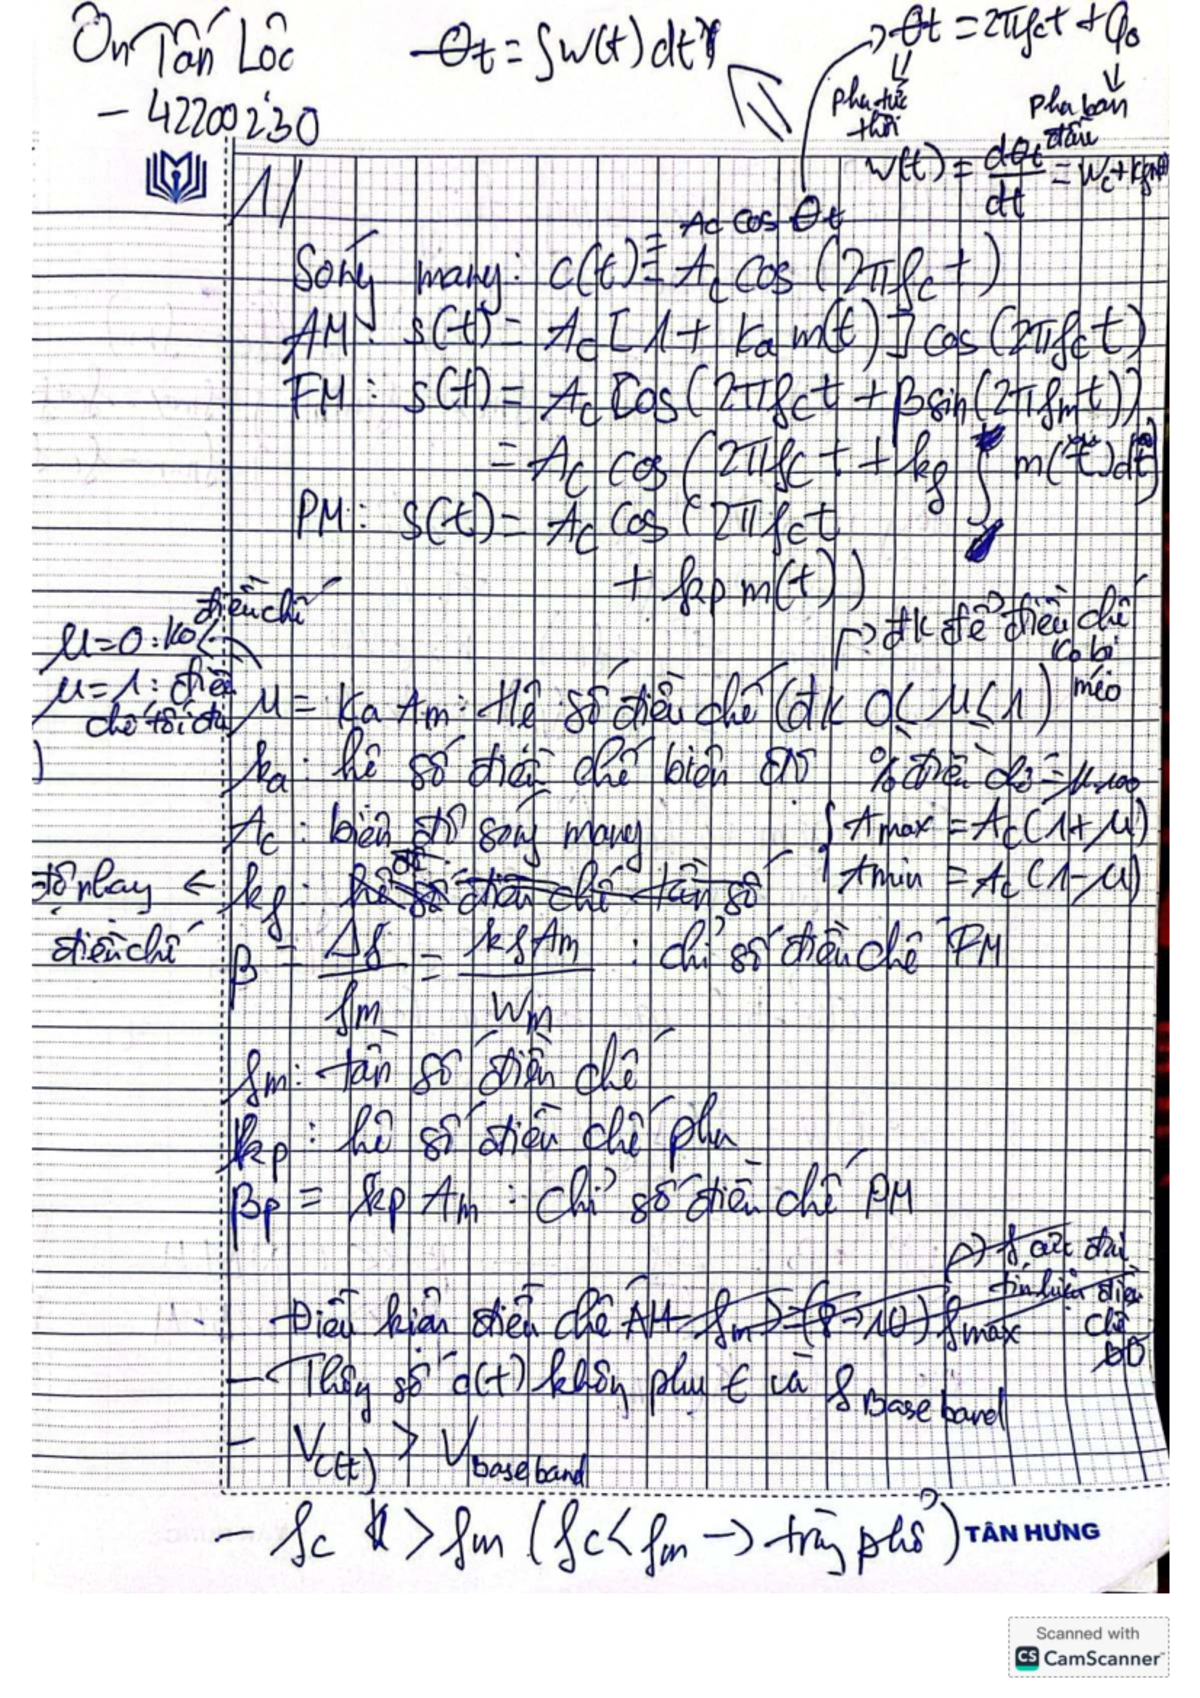 Ôn Tấn Lộc
- 42200230
θt = ∫w(t)dt
θt = 2πfct + φ0
pha tức thời
pha ban đầu
w(t) = dθt/dt = wc + kf m(t)
1/
Ac cos θt
Sóng mang: c(t) = Ac cos (2πfct)
AM: s(t) = Ac [1 + ka m(t)] cos (2πfct)
FM: s(t) = Ac cos(2πfct + βsin(2πfmt))
= Ac cos (2πfct + kf ∫ m(t)dt)
PM: s(t) = Ac cos (2πfct
+ kp m(t))
μ=0: ko điều chế
μ=1: điều chế tối đa
đk để điều chế ko bị méo
μ = ka Am: Hệ số điều chế (đk 0< μ ≤ 1)
ka: hệ số điều chế biên độ
% điều chế = μ.100
Ac: biên độ sóng mang
Amax = Ac(1+μ)
Amin = Ac(1-μ)
kf: hệ số điều chế tần số
độ nhạy điều chế
β = Δf/fm = kf Am/wm : chỉ số điều chế FM
fm: tần số điều chế
kp: hệ số điều chế pha
βp = kp Am : chỉ số điều chế PM
f cực đại tín hiệu điều chế
Điều kiện điều chế AM fm >= (8→10) fmax
- Thông số c(t) không phụ t cà f Baseband
- Vc(t) > Vbaseband
- fc > fm (fc < fm → trùng phổ)
TÂN HƯNG
Scanned with
CS CamScanner